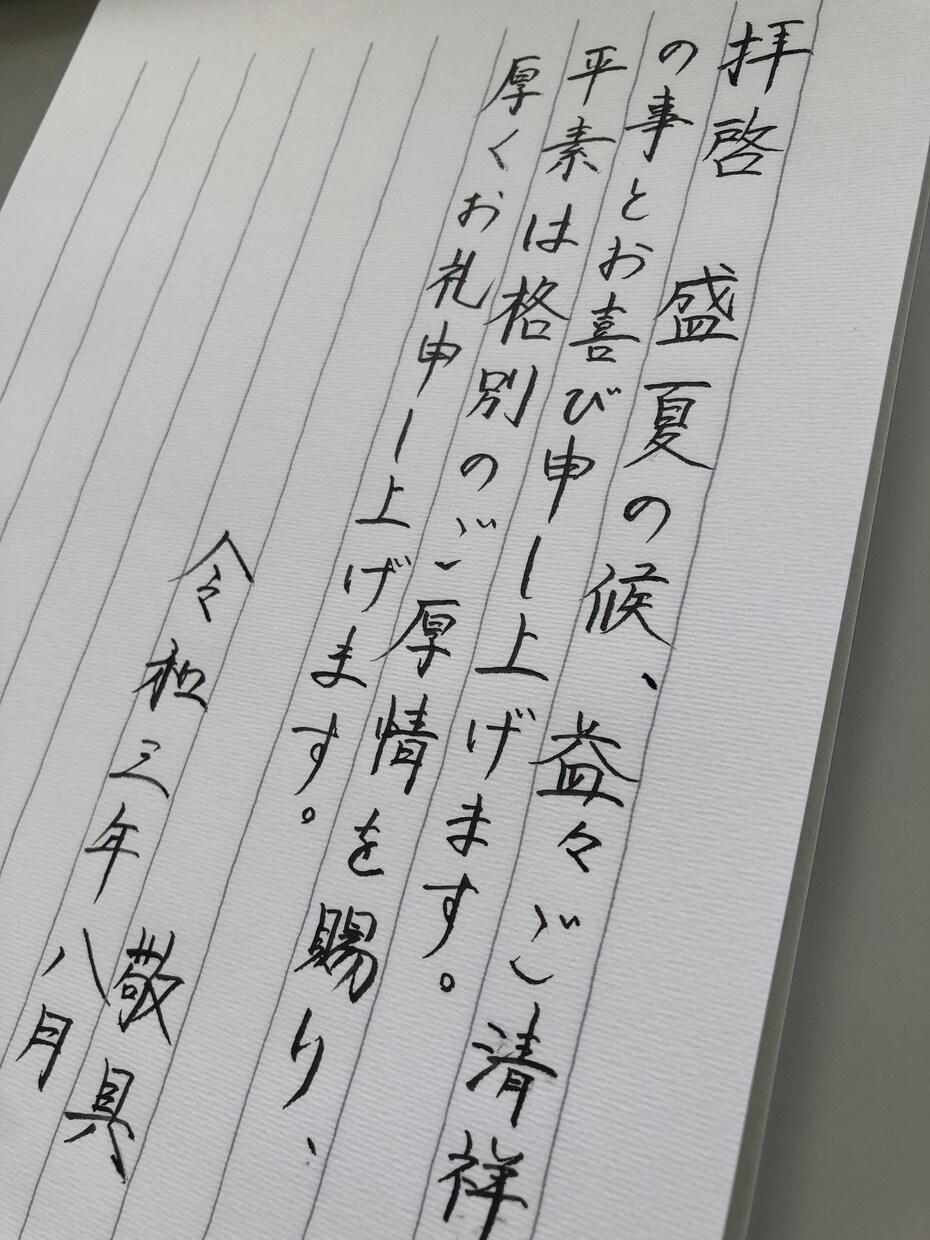 拝啓 盛夏の候、益々ご清祥
の事とお喜び申し上げます。
平素は格別のご厚情を賜り、
厚くお礼申し上げます。
敬具
令和三年八月